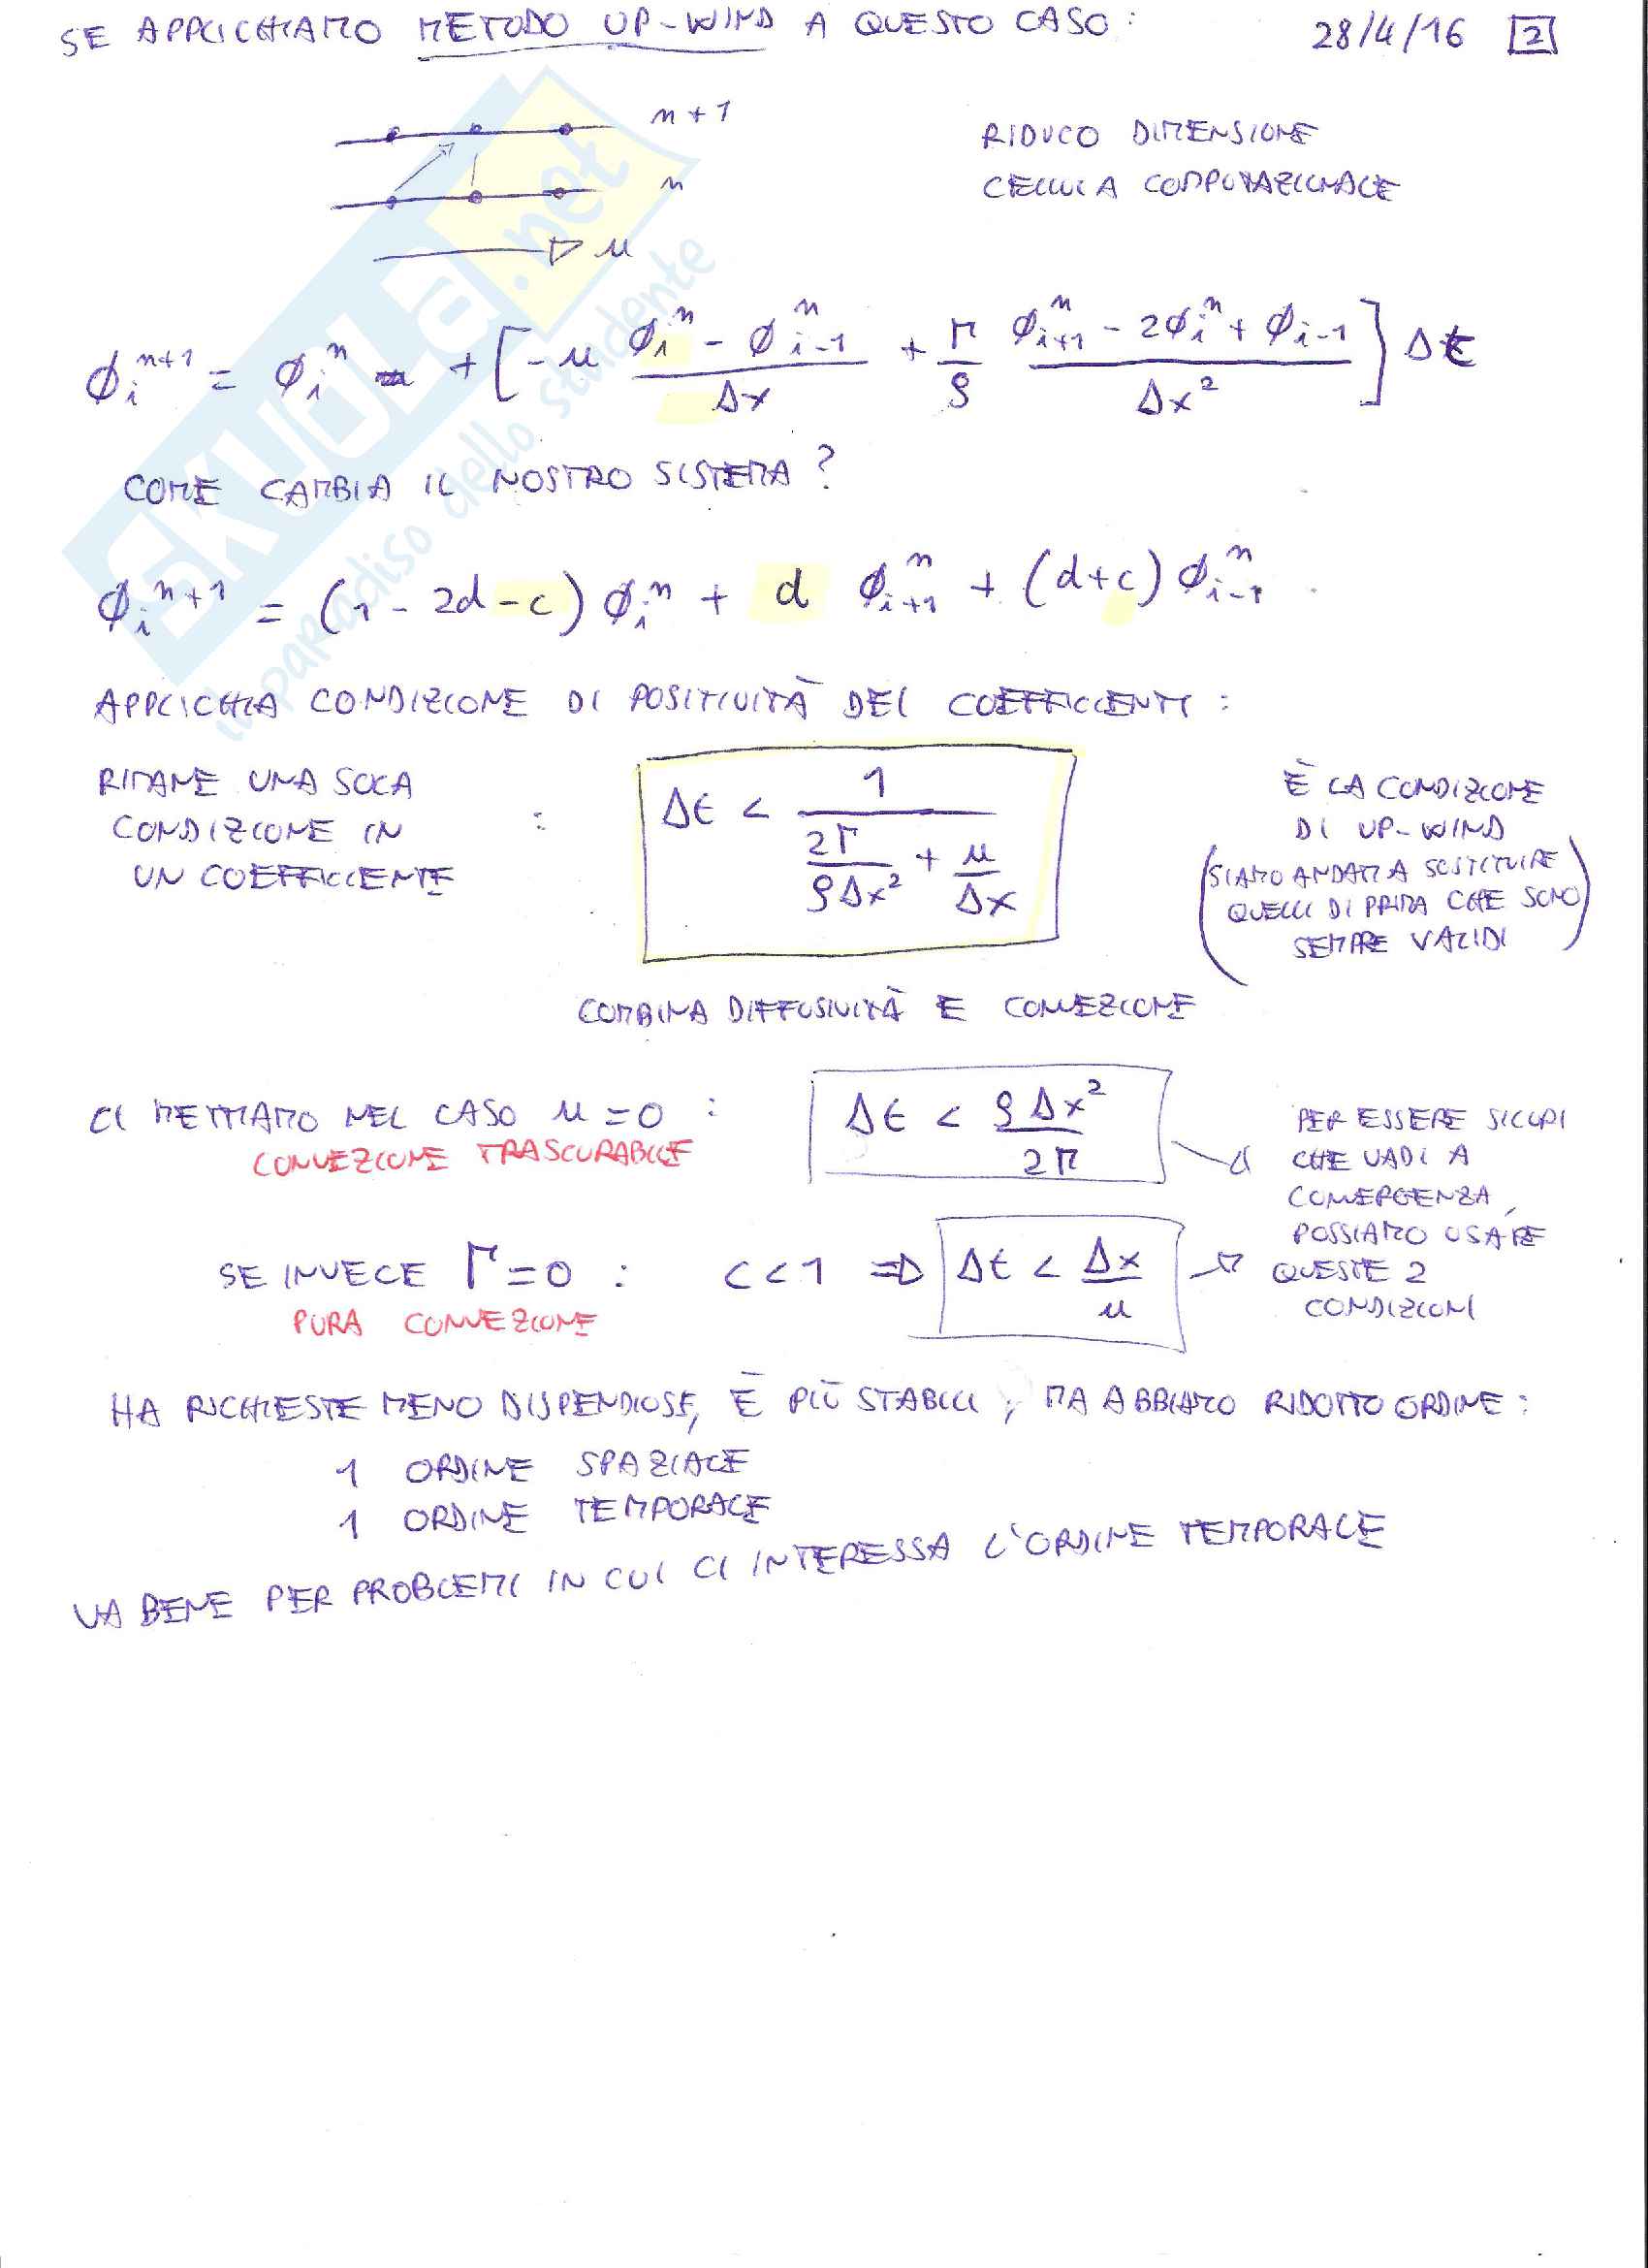 SE APPLICHIAMO METODO UP-WIND A QUESTO CASO: 28/4/16 2
n+1
RIDUCO DIMENSIONE
n
CELLULA COMPUTAZIONALE
u
ϕ_i^{n+1} = ϕ_i^n + [ -u (ϕ_i^n - ϕ_{i-1}^n)/Δx + Γ/ρ (ϕ_{i+1}^n - 2ϕ_i^n + ϕ_{i-1})/Δx² ] Δt
COME CAMBIA IL NOSTRO SISTEMA?
ϕ_i^{n+1} = (1 - 2d - c) ϕ_i^n + d ϕ_{i+1}^n + (d+c) ϕ_{i-1}^n
APPLICHIA CONDIZIONE DI POSITIVITÀ DEI COEFFICIENTI:
RIMANE UNA SOLA
CONDIZIONE IN
UN COEFFICIENTE
:
Δt < 1/(2Γ/(ρΔx²) + u/Δx)
È LA CONDIZIONE
DI UP-WIND
(SIAMO ANDATI A SOSTITUIRE
QUELLI DI PRIMA CHE SONO
SEMPRE VALIDI)
COMBINA DIFFUSIVITÀ E CONVEZIONE
CI METTIAMO NEL CASO u=0 : Δt < ρΔx²/2Γ
CONVEZIONE TRASCURABILE
SE INVECE Γ=0 : c<1 ⇒ Δt < Δx/u
PURA CONVEZIONE
PER ESSERE SICURI
CHE VADI A
CONVERGENZA,
POSSIAMO USARE
QUESTE 2
CONDIZIONI
HA RICHIESTE MENO DISPENDIOSE, È PIÙ STABILI, MA ABBIAMO RIDOTTO ORDINE:
1 ORDINE SPAZIALE
1 ORDINE TEMPORALE
VA BENE PER PROBLEMI IN CUI CI INTERESSA L'ORDINE TEMPORALE
SKUOLA.net
il paradiso dello studente